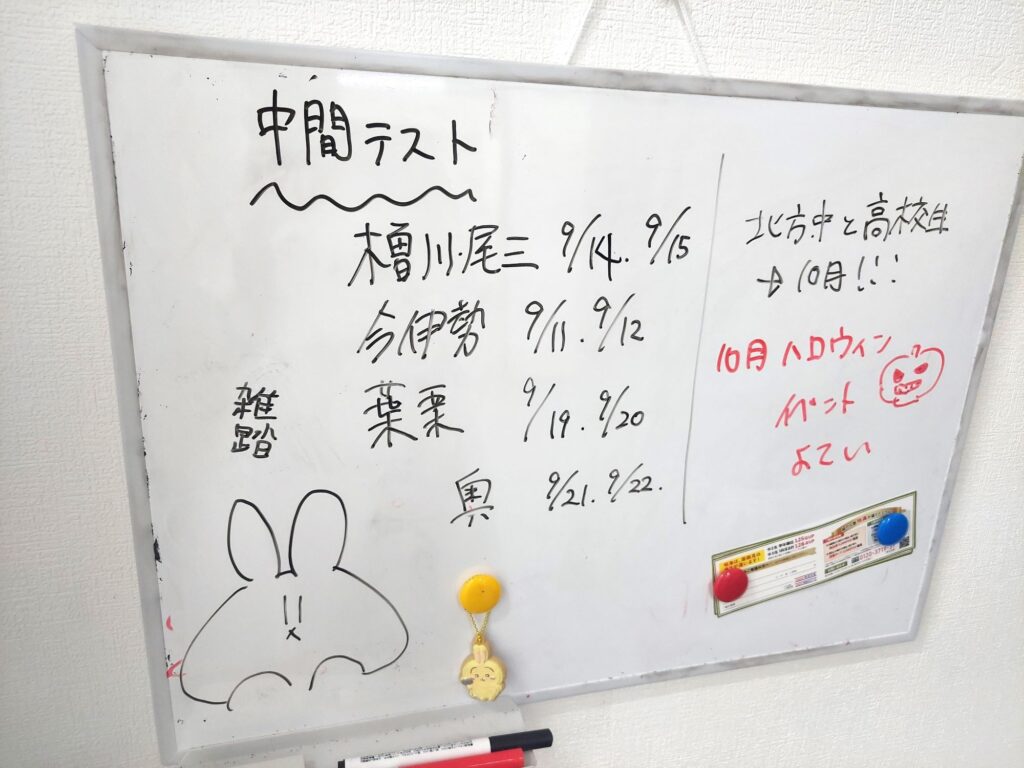 中間テスト
木曽川・尾三 9/14. 9/15
今伊勢 9/11. 9/12
葉栗 9/19. 9/20
奥 9/21. 9/22.
雑
踏
北方中と高校生
→10月!!!
10月 ハロウィン
イベント
よてい